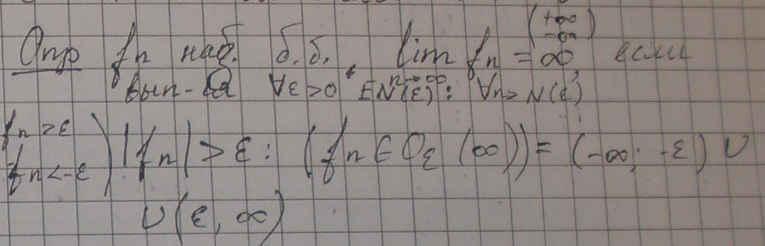 (+∞
-∞)
Опр fn наз. б.б. lim fn = ∞ если
n→∞
вып-ся ∀ε>0 ∃N(ε): ∀n> N(ε)
fn >ε
fn<-ε) |fn| > ε: (fn ∈ Oε (∞)) = (-∞; -ε) ∪
∪(ε, ∞)